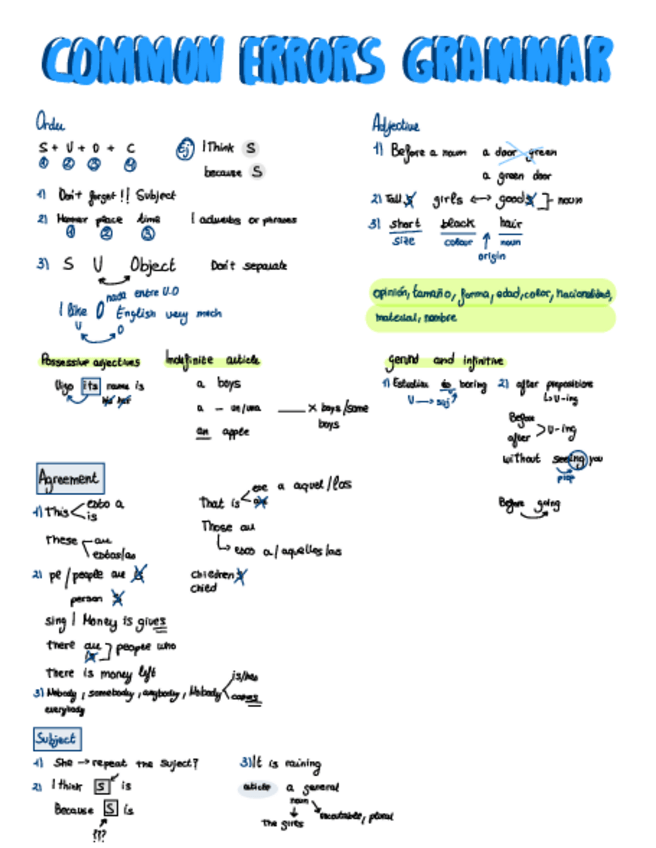 COMMON ERRORS GRAMMAR
Order
S + V + O + C
1 2 3 4
Ej I think S
because S
1) Don't forget!! Subject
2) Manner place time | adverbs or phrases
1 2 3
3) S V Object Don't separate
nada entre V.O
I like 0 English very much
V O
Adjective
1) Before a noum a door green
a green door
2) Tall s girls ↔ goods ] noun
3) short black hair
size colour ↑ noun
origin
opinión, tamaño, forma, edad, color, nacionalidad,
material, nombre
Possessive adjectives
Vigo its name is
his her
Indefinite article
a boys
a – un/una ___ x boys/some
boys
an apple
gerund and infinitive
1) Estudiar is boring
V → suj
2) after prepositions
↳ V-ing
Before
after > V-ing
without seeing you
prep
Before going
Agreement
1) This < esto a
is
These < are
estos/as
2) pe/people are is
person s
sing | Money is gives
there are ] people who
is
There is money left
3) Nobody, somebody, anybody, Nobody < is/has
everybody comes
That is < ese a aquel/las
are
Those are
↳ esos a/aquellos/as
children s
child
Subject
1) She → repeat the suject?
2) I think S is
Because S is
???
3) It is raining
article a general
noun
The girls uncoutable, plural